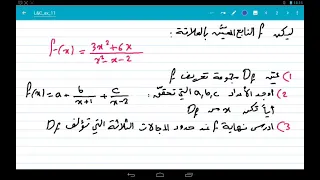 L&C_ex_11
ليكن f التابع المعيّن بالعلاقة :
f(x) = 3x²+6x / x²-x-2
1) عيّن Df مجموعة تعريف f
2) أوجد الأعداد a,b,c التي تحقق: f(x) = a + b/x+1 + c/x-2
أياً تكن x من Df
3) ادرس نهاية f عند حدود المجالات الثلاثة التي تؤلف Df